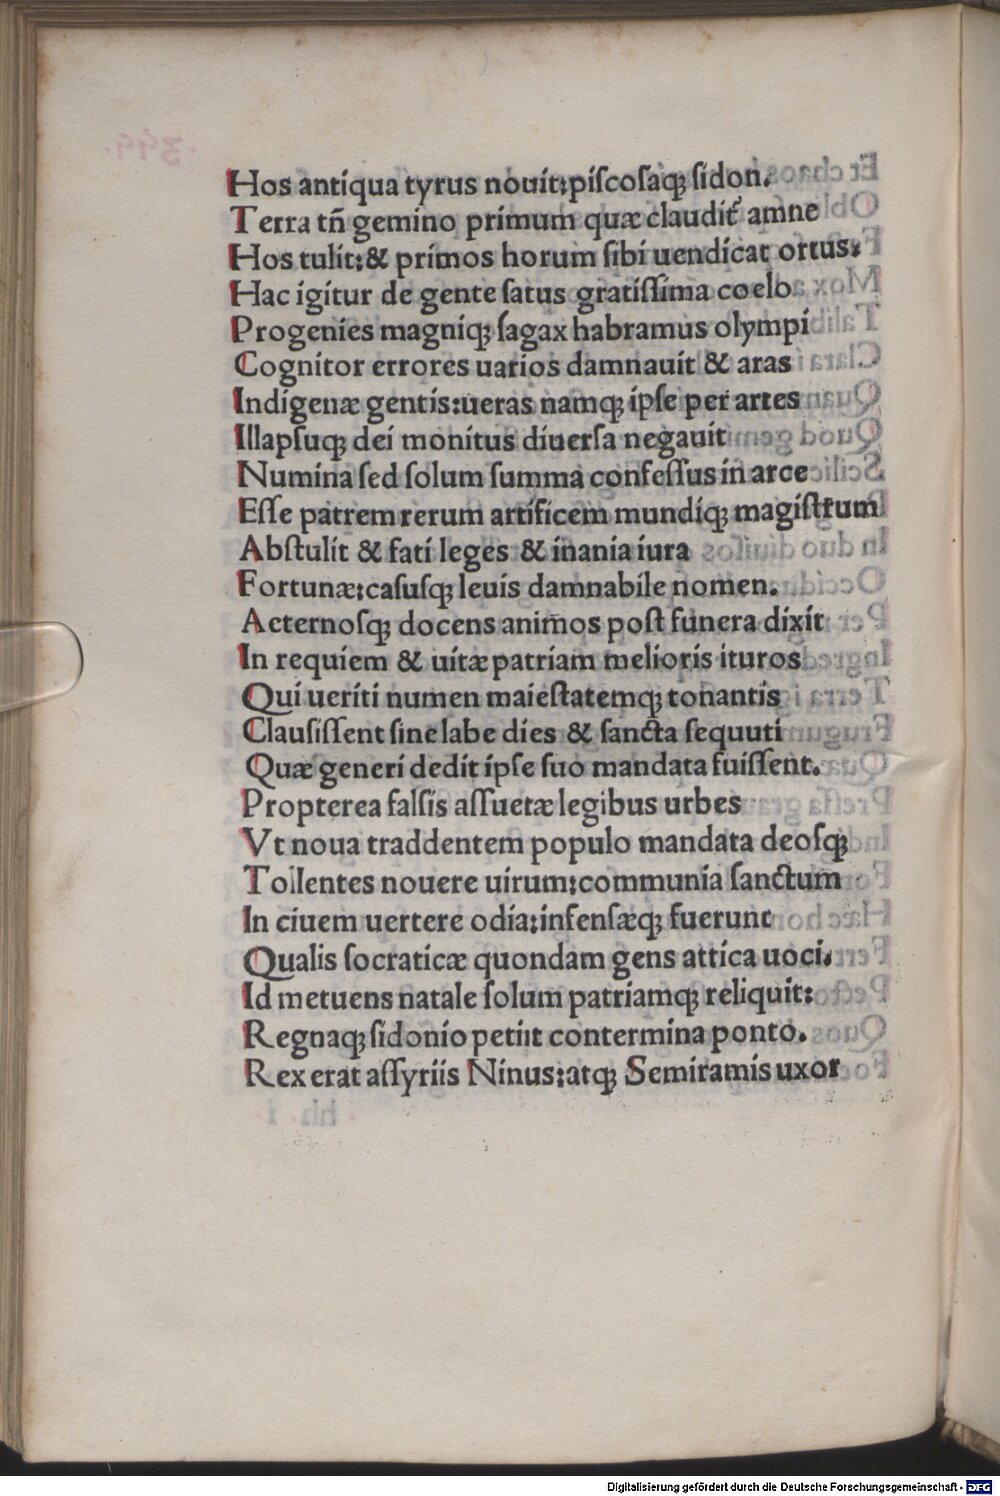 Hos antiqua tyrus nouit:piſcoſaqꝫ ſidon.
Terra tñ gemino primum quæ claudit᷑ amne
Hos tulit:& primos horum ſibi uendicat ortus:
Hac igitur de gente ſatus gratiſſima coelo
Progenies magniqꝫ ſagax habramus olympi
Cognitor errores uarios damnauit & aras
Indigenæ gentis:ueras namqꝫ ipſe per artes
Illapſuqꝫ dei monitus diuerſa negauit
Numina ſed ſolum ſumma confeſſus in arce
Eſſe patrem rerum artificem mundiqꝫ magiſtrum
Abſtulit & fati leges & inania iura
Fortunæ:caſuſqꝫ leuis damnabile nomen.
Aeternoſqꝫ docens animos poſt funera dixit
In requiem & uitæ patriam melioris ituros
Qui ueriti numen maieſtatemqꝫ tonantis
Clauſiſſent ſine labe dies & ſancta ſequuti
Quæ generi dedit ipſe ſuo mandata fuiſſent.
Propterea falſis aſſuetæ legibus urbes
Vt noua traddentem populo mandata deoſqꝫ
Tollentes nouere uirum:communia ſanctum
In ciuem uertere odia:infenſæqꝫ fuerunt
Qualis ſocraticæ quondam gens attica uoci.
Id metuens natale ſolum patriamqꝫ reliquit:
Regnaqꝫ ſidonio petiit contermina ponto.
Rex erat aſſyriis Ninus:atqꝫ Semiramis uxor
Digitalisierung gefördert durch die Deutsche Forschungsgemeinschaft - DFG